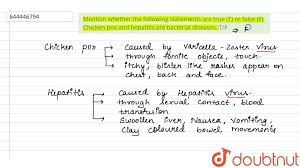 644446794
Mention whether the following statements are true (T) or false (F)
Chicken pox and hepatitis are bacterial diseases. T/F → F
Chicken pox → Caused by varicella - Zoster virus
→ through fomite objects, touch
→ itchy, blister like rashes appear on
chest, back and face.
Hepatitis → Caused by Hepatitis virus.
→ through sexual contact, blood
transfusion
→ Swoollen liver, Nausea, Vomiting,
Clay coloured bowel movements
doubtnut